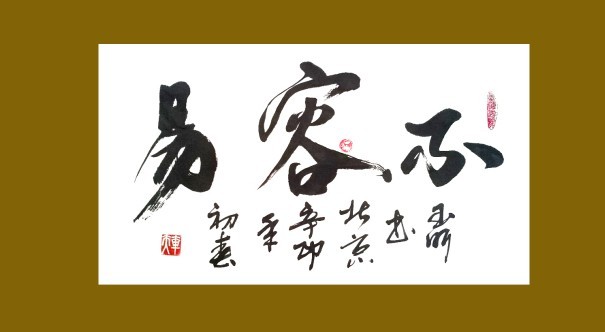 不容易
书
北京
辛卯
年
初春